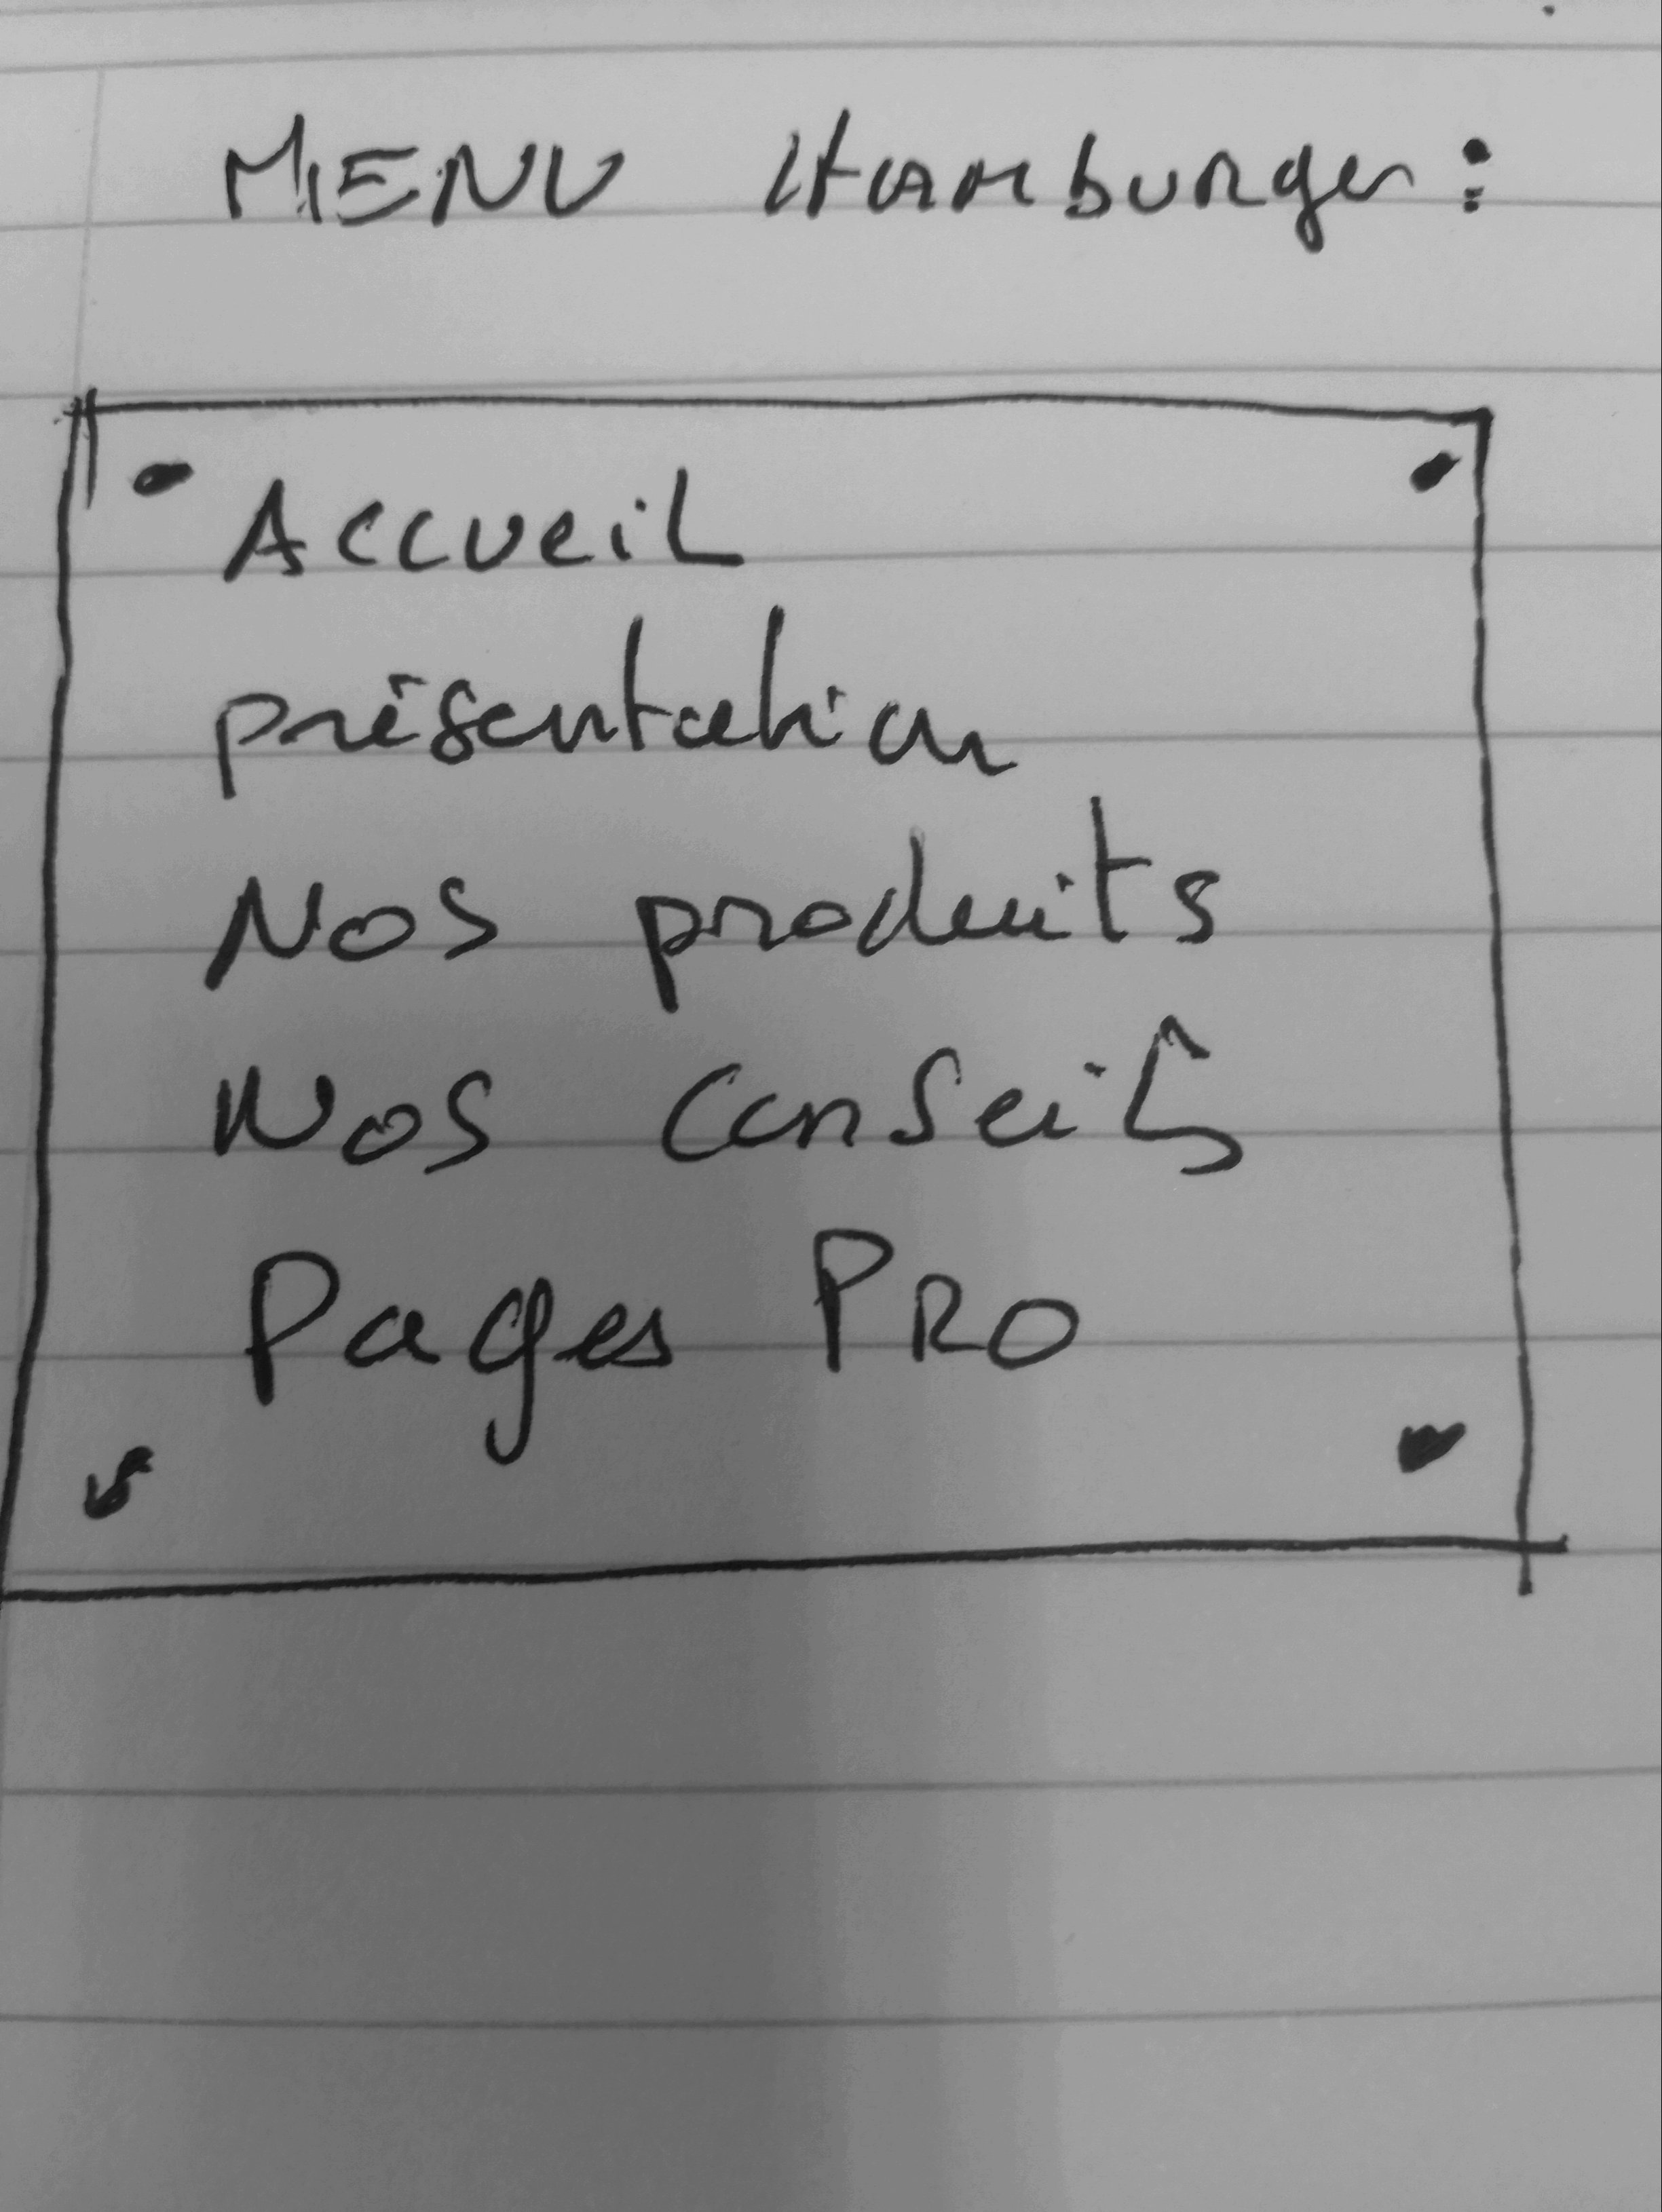 MENU Hamburger :
Accueil
présentation
Nos produits
Nos conseils
Pages PRO